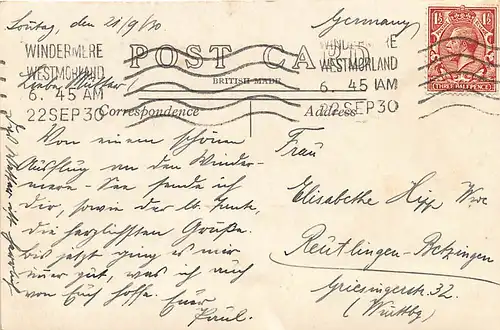 Sontag, den 21/9/30
Germany
WINDERMERE
WESTMORLAND
6. 45 AM
22 SEP 30
POST CARD
BRITISH MADE
WINDERMERE
WESTMORLAND
6. 45 AM
22 SEP 30
THREE HALFPENCE
Liebe Mutter!
Correspondence
Address
Von einem schönen
Ausflug an den Winder-
mere-See sende ich
Dir, sowie der lb. Tante,
die herzlichsten Grüße.
Bis jetzt ging es mir
immer gut, was ich auch
von Euch hoffe. Euer
Paul.
Frau
Elisabethe Hipp Wwe
Reutlingen-Betzingen
Griesingerstr. 32
(Württbg)